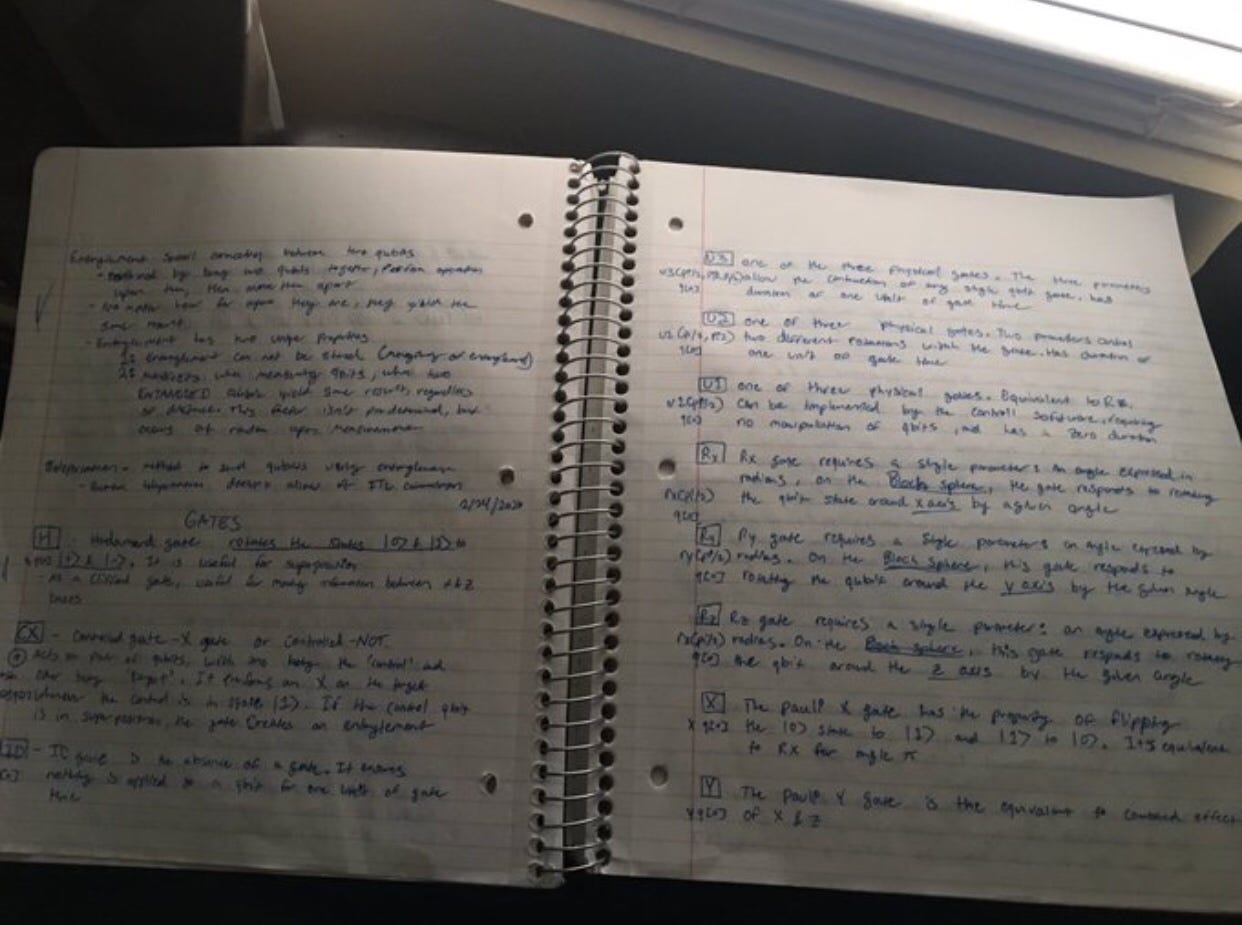 Entanglement between two qubits
- by two qubits together, Perform operation
upon them, then move them apart
- No matter how far apart they are, they yield the
same result.
- Entanglement has two unique properties
1.
2. when measuring qbits, when two
ENTANGLED qubits yield same results, regardless
of distance. This isn't on demand, but
occurs at random upon measurement
Teleportation - method to send qubits using entanglement
- doesn't allow
2/24/2020
GATES
H - Hadamard gate rotates the states |0> & |1> to
|+> & |->. It is useful for superposition
- As a Clifford gate, useful for moving information between x & z
bases
CX - Controlled gate - X gate or Controlled-NOT.
Acts on pair of qbits, with one being the 'control' and
other being 'target'. It performs an X on the target
whenever the control is in state |1>. If the control qbit
is in superposition, the gate creates an entanglement
ID - gate is the absence of a gate. It ensures
nothing is applied to a qbit for one unit of gate
time
U3 one of the three physical gates. The three parameters
allow the construction of any single qbit gate. has
q[0] duration of one unit of gate time
U2 one of three physical gates. Two parameters control
two different rotations within the gate. Has duration of
q[0] one unit of gate time
U1 one of three physical gates. Equivalent to Rz.
can be implemented by the controll software, requiring
q[0] no manipulation of qbits, and has a zero duration
Rx Rx gate requires a single parameter: An angle expressed in
radians, on the Bloch sphere, the gate responds to rotating
rx(pi/2) the qbit state around x axis by a given angle
q[0]
Ry Ry gate requires a single parameter: an angle expressed by
ry(pi/2) radians. On the Bloch sphere, this gate responds to
q[0] rotating the qubit around the y axis by the given angle
Rz Rz gate requires a single parameter: an angle expressed by
rz(pi/2) radians. On the Bloch sphere, this gate responds to rotating
q[0] the qbit around the z axis by the given angle
X The pauli X gate has the property of flipping
x q[0] the |0> state to |1> and |1> to |0>. It is equivalent
to Rx for angle π
Y The pauli Y gate is the equivalent to combined effect
y q[0] of X & Z